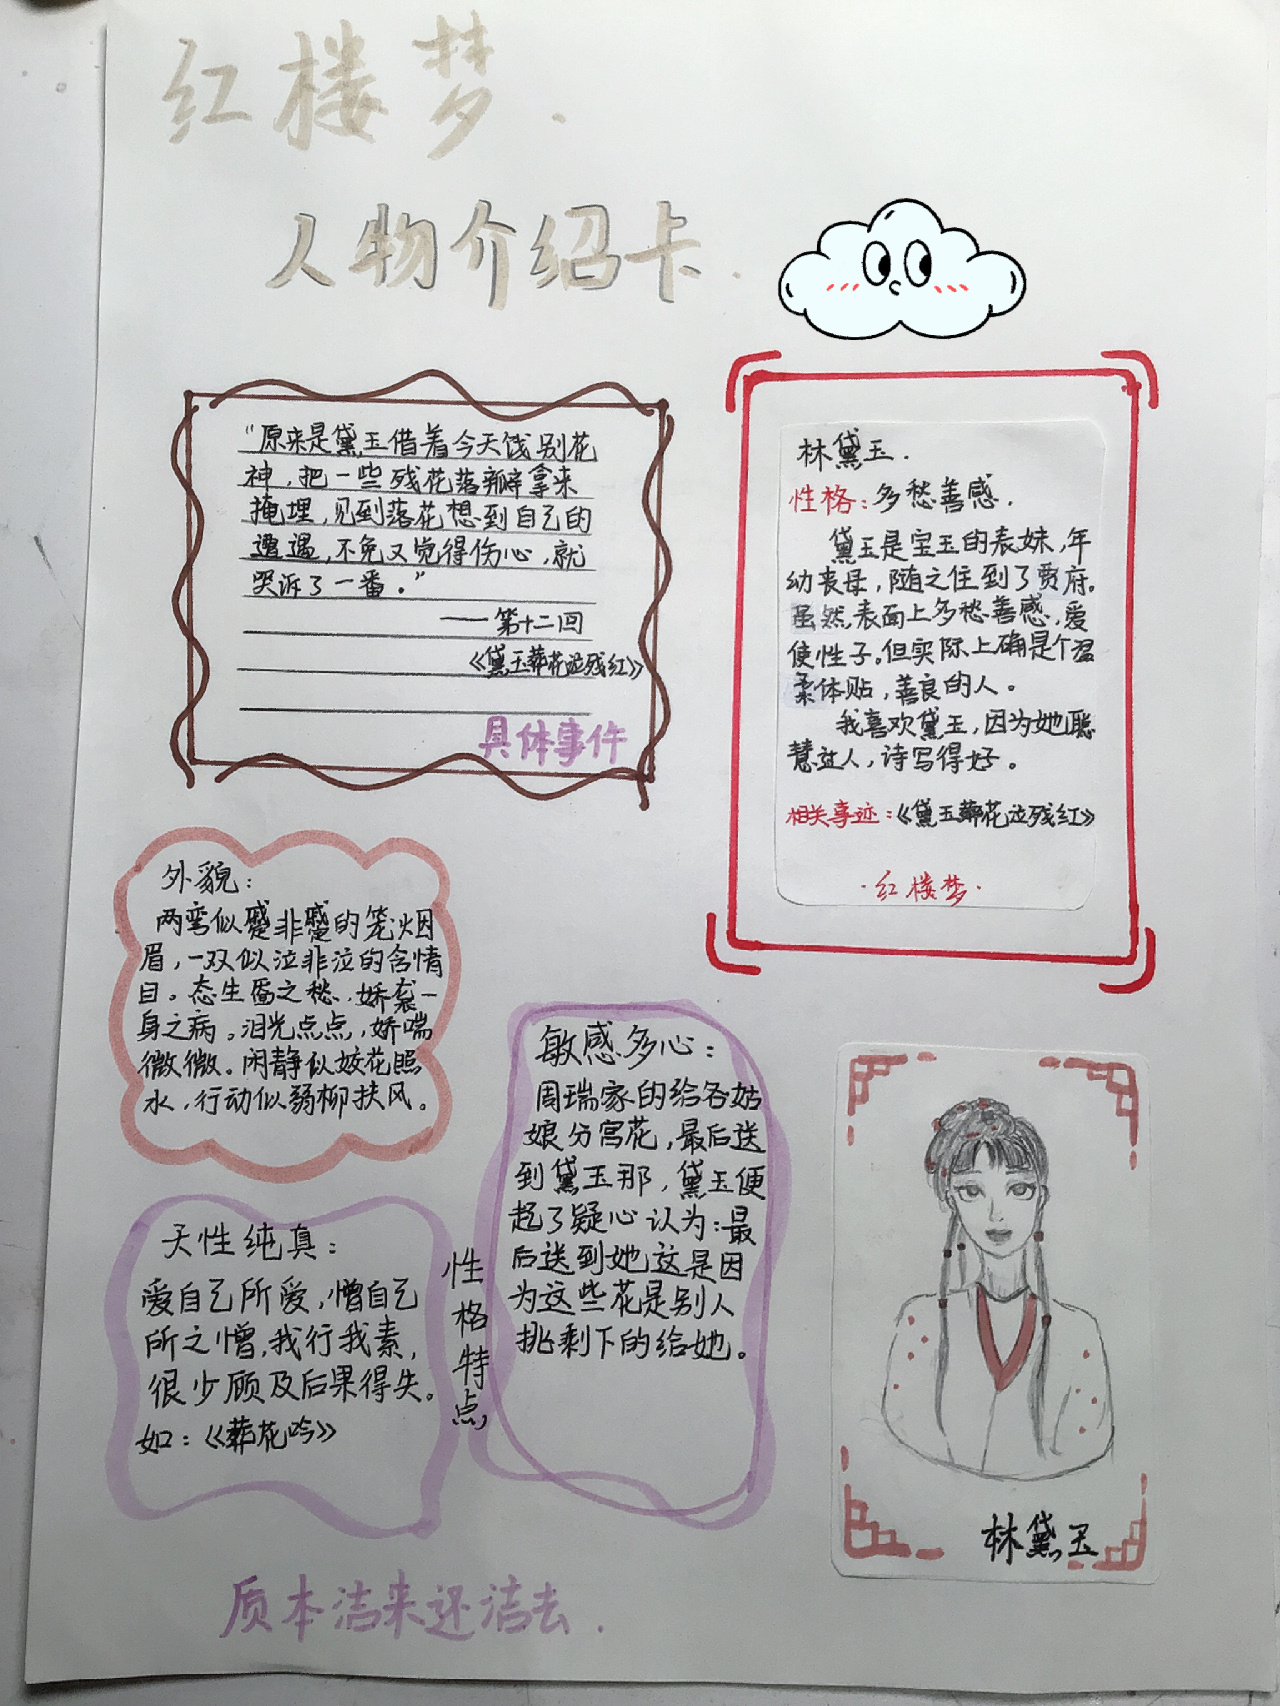 红楼梦.
人物介绍卡.
“原来是黛玉借着今天饯别花
神，把一些残花落瓣拿来
掩埋，见到落花想到自己的
遭遇，不免又觉得伤心，就
哭诉了一番。”
——第十二回
《黛玉葬花泣残红》
具体事件
林黛玉.
性格：多愁善感.
黛玉是宝玉的表妹，年
幼丧母，随之住到了贾府。
虽然表面上多愁善感，爱
使性子。但实际上确是个温
柔体贴，善良的人。
我喜欢黛玉，因为她聪
慧过人，诗写得好。
相关事迹：《黛玉葬花泣残红》
·红楼梦·
外貌：
两弯似蹙非蹙的笼烟
眉，一双似泣非泣的含情
目。态生靥之愁，娇袭一
身之病。泪光点点，娇喘
微微。闲静似姣花照
水，行动似弱柳扶风。
天性纯真：
爱自己所爱，憎自己
所之憎，我行我素，
很少顾及后果得失。
如：《葬花吟》
性格特点
敏感多心：
周瑞家的给各姑
娘分宫花，最后送
到黛玉那，黛玉便
起了疑心认为：最
后送到她这是因
为这些花是别人
挑剩下的给她。
林黛玉
质本洁来还洁去.